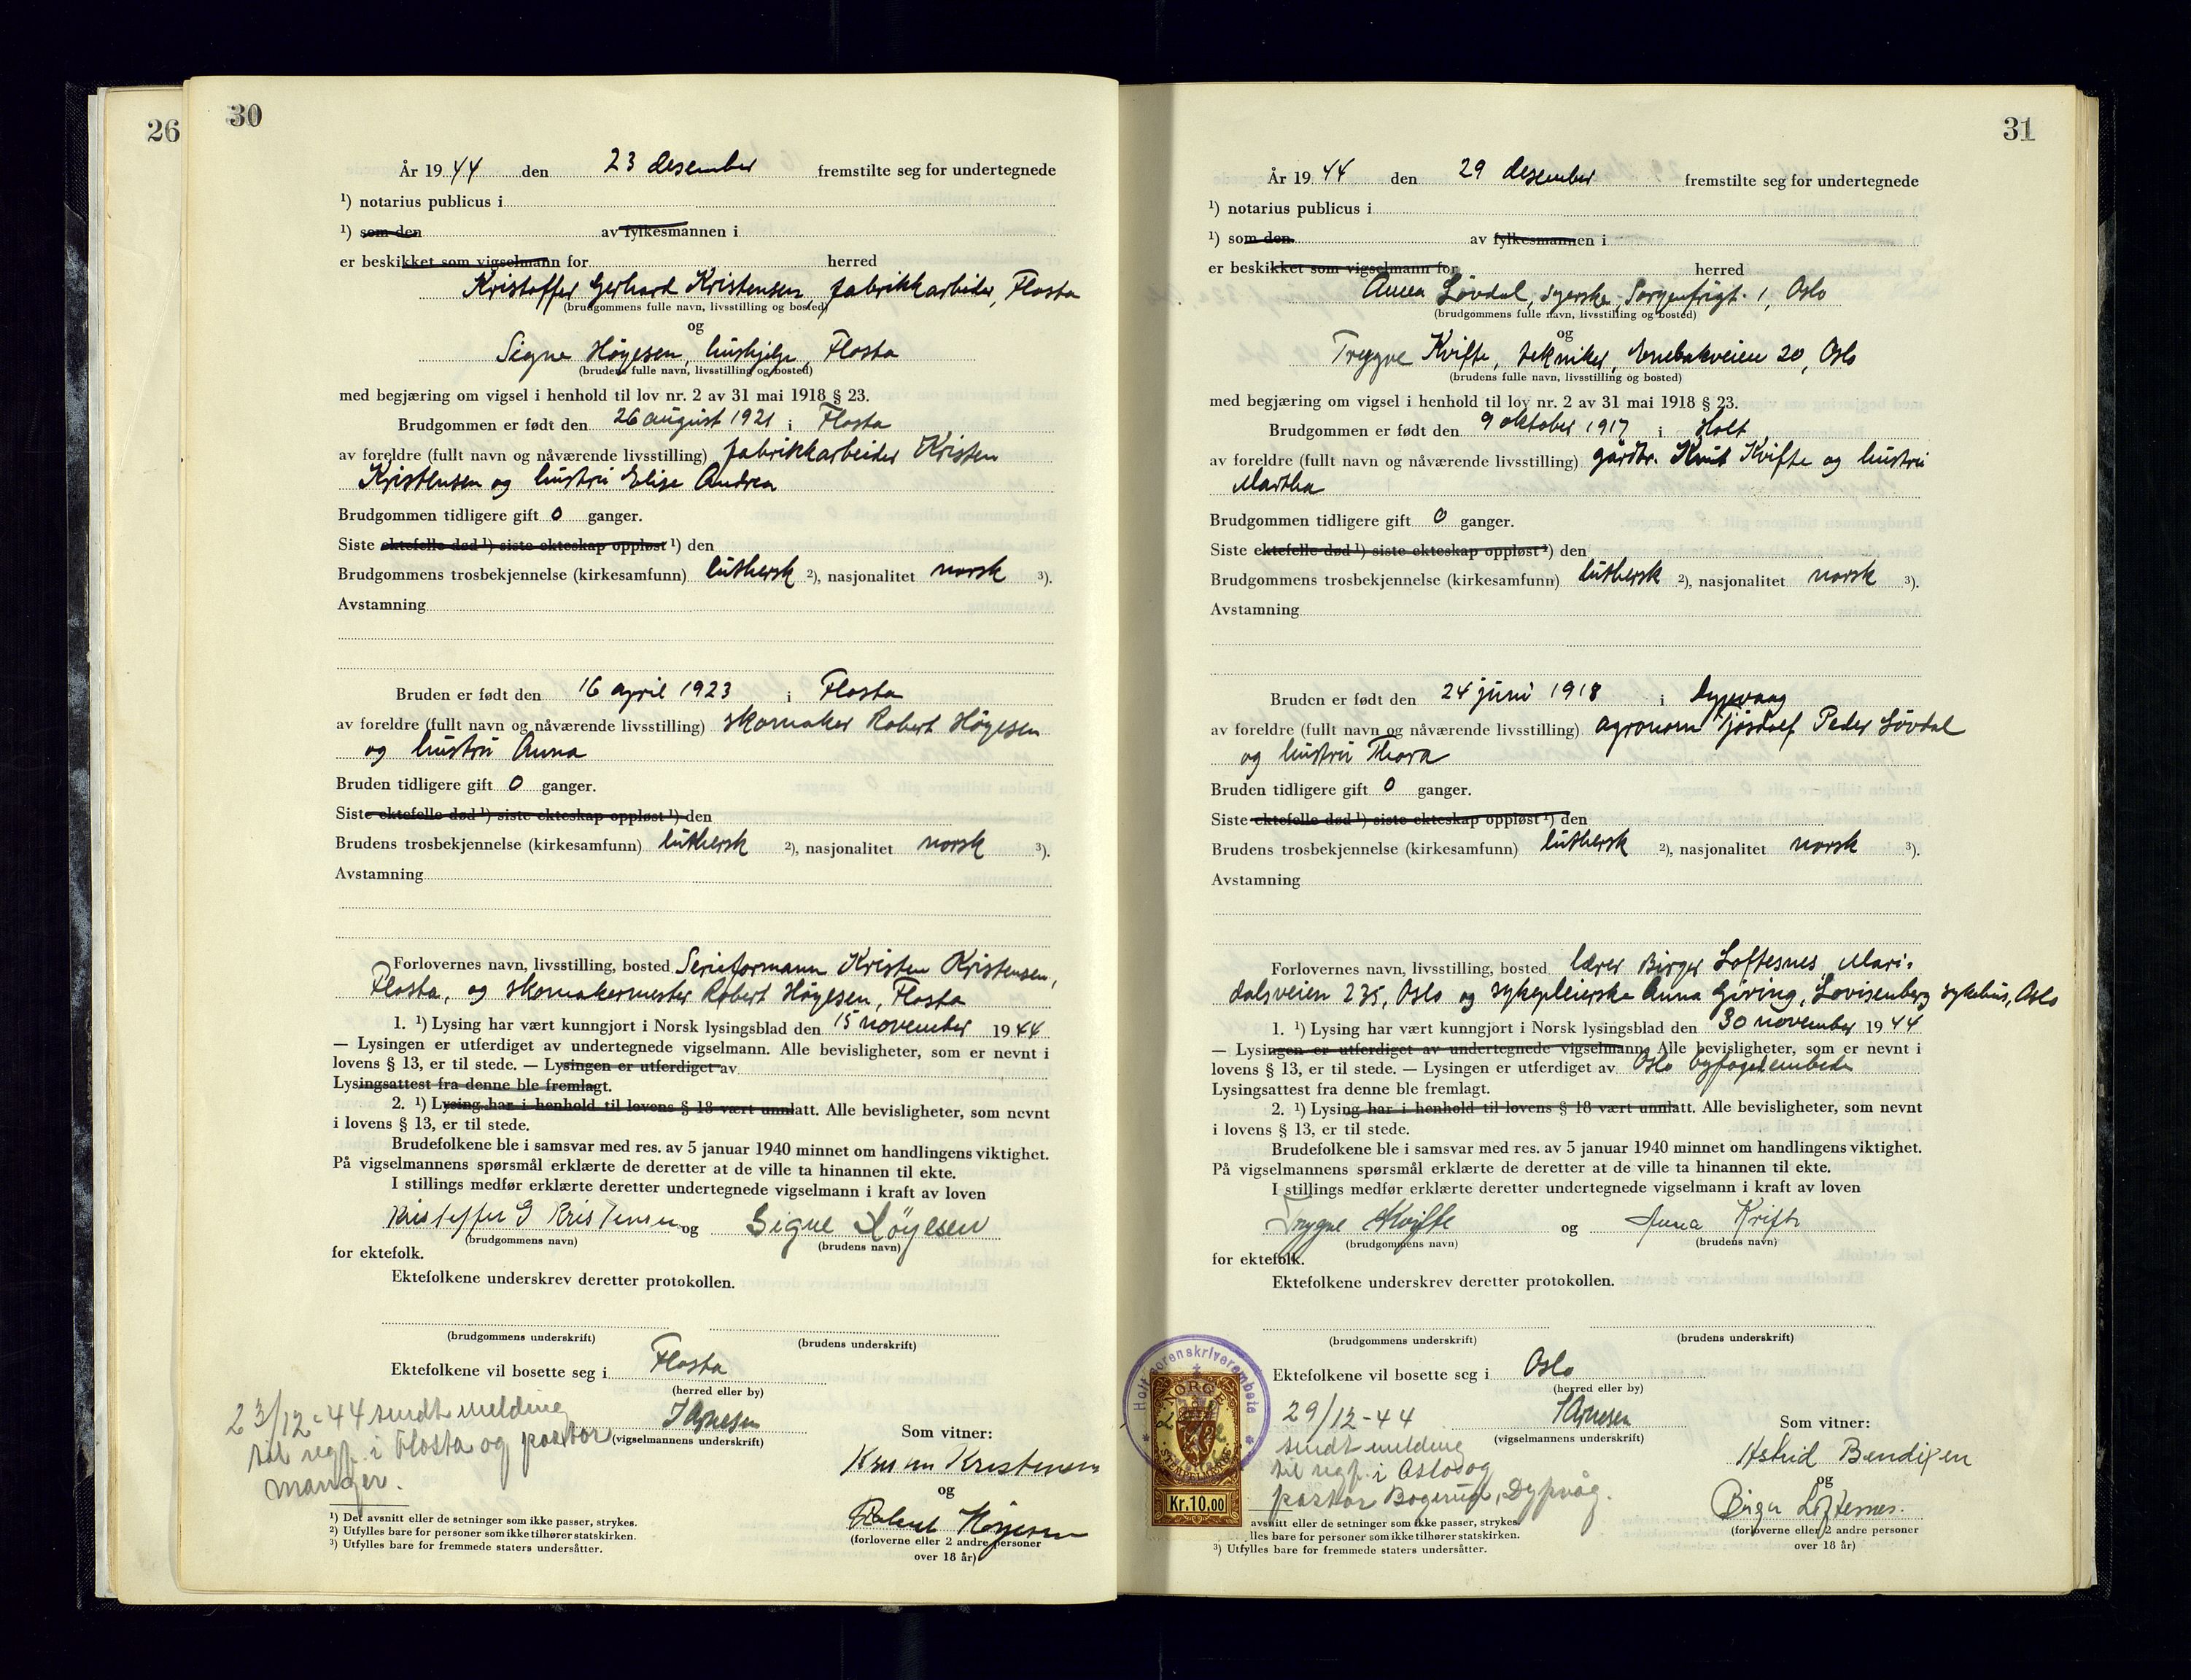 26
30
År 1944 den 23 desember fremstilte seg for undertegnede
¹) notarius publicus i
¹) som den av fylkesmannen i
er beskikket som vigselmann for herred
Kristoffer Gerhard Kristensen, fabrikkarbeider, Flosta
(brudgommens fulle navn, livsstilling og bosted)
og
Signe Höyesen, hushjelp, Flosta
(brudens fulle navn, livsstilling og bosted)
med begjæring om vigsel i henhold til lov nr. 2 av 31 mai 1918 § 23.
Brudgommen er født den 26 august 1921 i Flosta
av foreldre (fullt navn og nåværende livsstilling) fabrikkarbeider Kristen
Kristensen og hustru Elise Andrea
Brudgommen tidligere gift 0 ganger.
Siste ektefelle død ¹) siste ekteskap oppløst ¹) den
Brudgommens trosbekjennelse (kirkesamfunn) luthersk ²), nasjonalitet norsk ³).
Avstamning
Bruden er født den 16 april 1923 i Flosta
av foreldre (fullt navn og nåværende livsstilling) skomaker Robert Höyesen
og hustru Anna
Bruden tidligere gift 0 ganger.
Siste ektefelle død ¹) siste ekteskap oppløst ¹) den
Brudens trosbekjennelse (kirkesamfunn) luthersk ²), nasjonalitet norsk ³).
Avstamning
Forlovernes navn, livsstilling, bosted Kristen Kristensen,
Flosta, og skomakermester Robert Höyesen, Flosta
1. ¹) Lysing har vært kunngjort i Norsk lysingsblad den 15 november 1944
— Lysingen er utferdiget av undertegnede vigselmann. Alle bevisligheter, som er nevnt i
lovens § 13, er til stede. — Lysingen er utferdiget av
Lysingsattest fra denne ble fremlagt.
2. ¹) Lysing har i henhold til lovens § 18 vært unnlatt. Alle bevisligheter, som nevnt
i lovens § 13, er til stede.
Brudefolkene ble i samsvar med res. av 5 januar 1940 minnet om handlingens viktighet.
På vigselmannens spørsmål erklærte de deretter at de ville ta hinannen til ekte.
I stillings medfør erklærte deretter undertegnede vigselmann i kraft av loven
Kristoffer G Kristensen og Signe Höyesen
(brudgommens navn) (brudens navn)
for ektefolk.
Ektefolkene underskrev deretter protokollen.
(brudgommens underskrift) (brudens underskrift)
Ektefolkene vil bosette seg i Flosta
(herred eller by)
23/12-44 sendt melding
til regf. i Flosta og pastor
Manger.
(vigselmannens underskrift)
Som vitner:
Kristen Kristensen
og
Robert Höyesen
(forloverne eller 2 andre personer
over 18 år)
¹) Det avsnitt eller de setninger som ikke passer, strykes.
²) Utfylles bare for personer som ikke tilhører statskirken.
³) Utfylles bare for fremmede staters undersåtter.
31
År 1944 den 29 desember fremstilte seg for undertegnede
¹) notarius publicus i
¹) som den av fylkesmannen i
er beskikket som vigselmann for herred
Anna Lövdal, syerske, Sorgenfrigt. 1, Oslo
(brudgommens fulle navn, livsstilling og bosted)
og
Trygve Kvifte, tekniker, Enebakveien 20, Oslo
(brudens fulle navn, livsstilling og bosted)
med begjæring om vigsel i henhold til lov nr. 2 av 31 mai 1918 § 23.
Brudgommen er født den 9 oktober 1917 i Holt
av foreldre (fullt navn og nåværende livsstilling) gårdbr. Knut Kvifte og hustru
Martha
Brudgommen tidligere gift 0 ganger.
Siste ektefelle død ¹) siste ekteskap oppløst ¹) den
Brudgommens trosbekjennelse (kirkesamfunn) luthersk ²), nasjonalitet norsk ³).
Avstamning
Bruden er født den 24 juni 1918 i Dypvaag
av foreldre (fullt navn og nåværende livsstilling) agronom Peder Lövdal
og hustru Thora
Bruden tidligere gift 0 ganger.
Siste ektefelle død ¹) siste ekteskap oppløst ¹) den
Brudens trosbekjennelse (kirkesamfunn) luthersk ²), nasjonalitet norsk ³).
Avstamning
Forlovernes navn, livsstilling, bosted lærer Birger Loftesnes, Mari-
dalsveien 235, Oslo og sykepleierske Anna Giving, Lovisenberg sykehus, Oslo
1. ¹) Lysing har vært kunngjort i Norsk lysingsblad den 30 november 1944
— Lysingen er utferdiget av undertegnede vigselmann. Alle bevisligheter, som er nevnt i
lovens § 13, er til stede. — Lysingen er utferdiget av Oslo byfogdembede
Lysingsattest fra denne ble fremlagt.
2. ¹) Lysing har i henhold til lovens § 18 vært unnlatt. Alle bevisligheter, som nevnt
i lovens § 13, er til stede.
Brudefolkene ble i samsvar med res. av 5 januar 1940 minnet om handlingens viktighet.
På vigselmannens spørsmål erklærte de deretter at de ville ta hinannen til ekte.
I stillings medfør erklærte deretter undertegnede vigselmann i kraft av loven
Trygve Kvifte og Anna Kvifte
(brudgommens navn) (brudens navn)
for ektefolk.
Ektefolkene underskrev deretter protokollen.
(brudgommens underskrift) (brudens underskrift)
Ektefolkene vil bosette seg i Oslo
(herred eller by)
Holt sorenskriverembete
NORGE
STEMPELMERKE
Kr.10,00
29/12-44
sendt melding
til regf. i Oslo og
pastor Bogerud, Dypvåg.
(vigselmannens underskrift)
Som vitner:
Astrid Bendixen
og
Birger Loftesnes.
(forloverne eller 2 andre personer
over 18 år)
avsnitt eller de setninger som ikke passer, strykes.
lles bare for personer som ikke tilhører statskirken.
³) Utfylles bare for fremmede staters undersåtter.